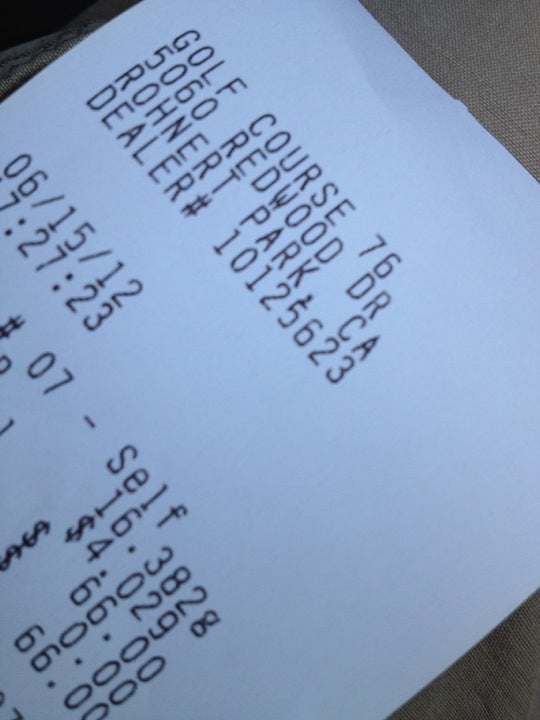 GOLF COURSE 76
5060 REDWOOD DR
ROHNERT PARK, CA
DEALER# 10125623
06/15/12
7:27:23
# 07 - Self
16.382g
$4.029
$ 66.00
$ 0.00
66.00